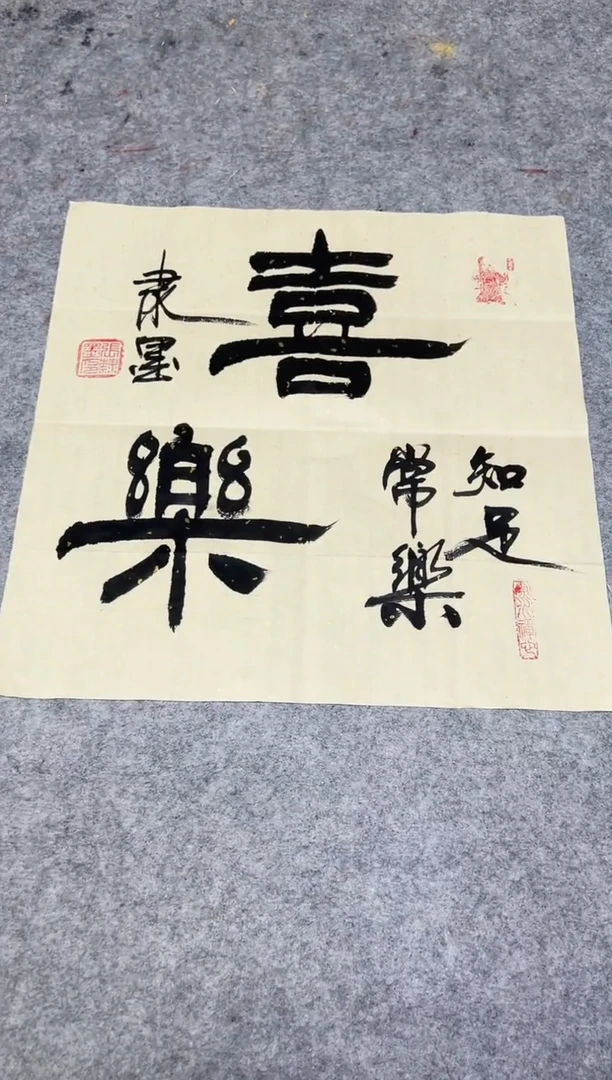 喜
樂
知足
常樂
隶墨